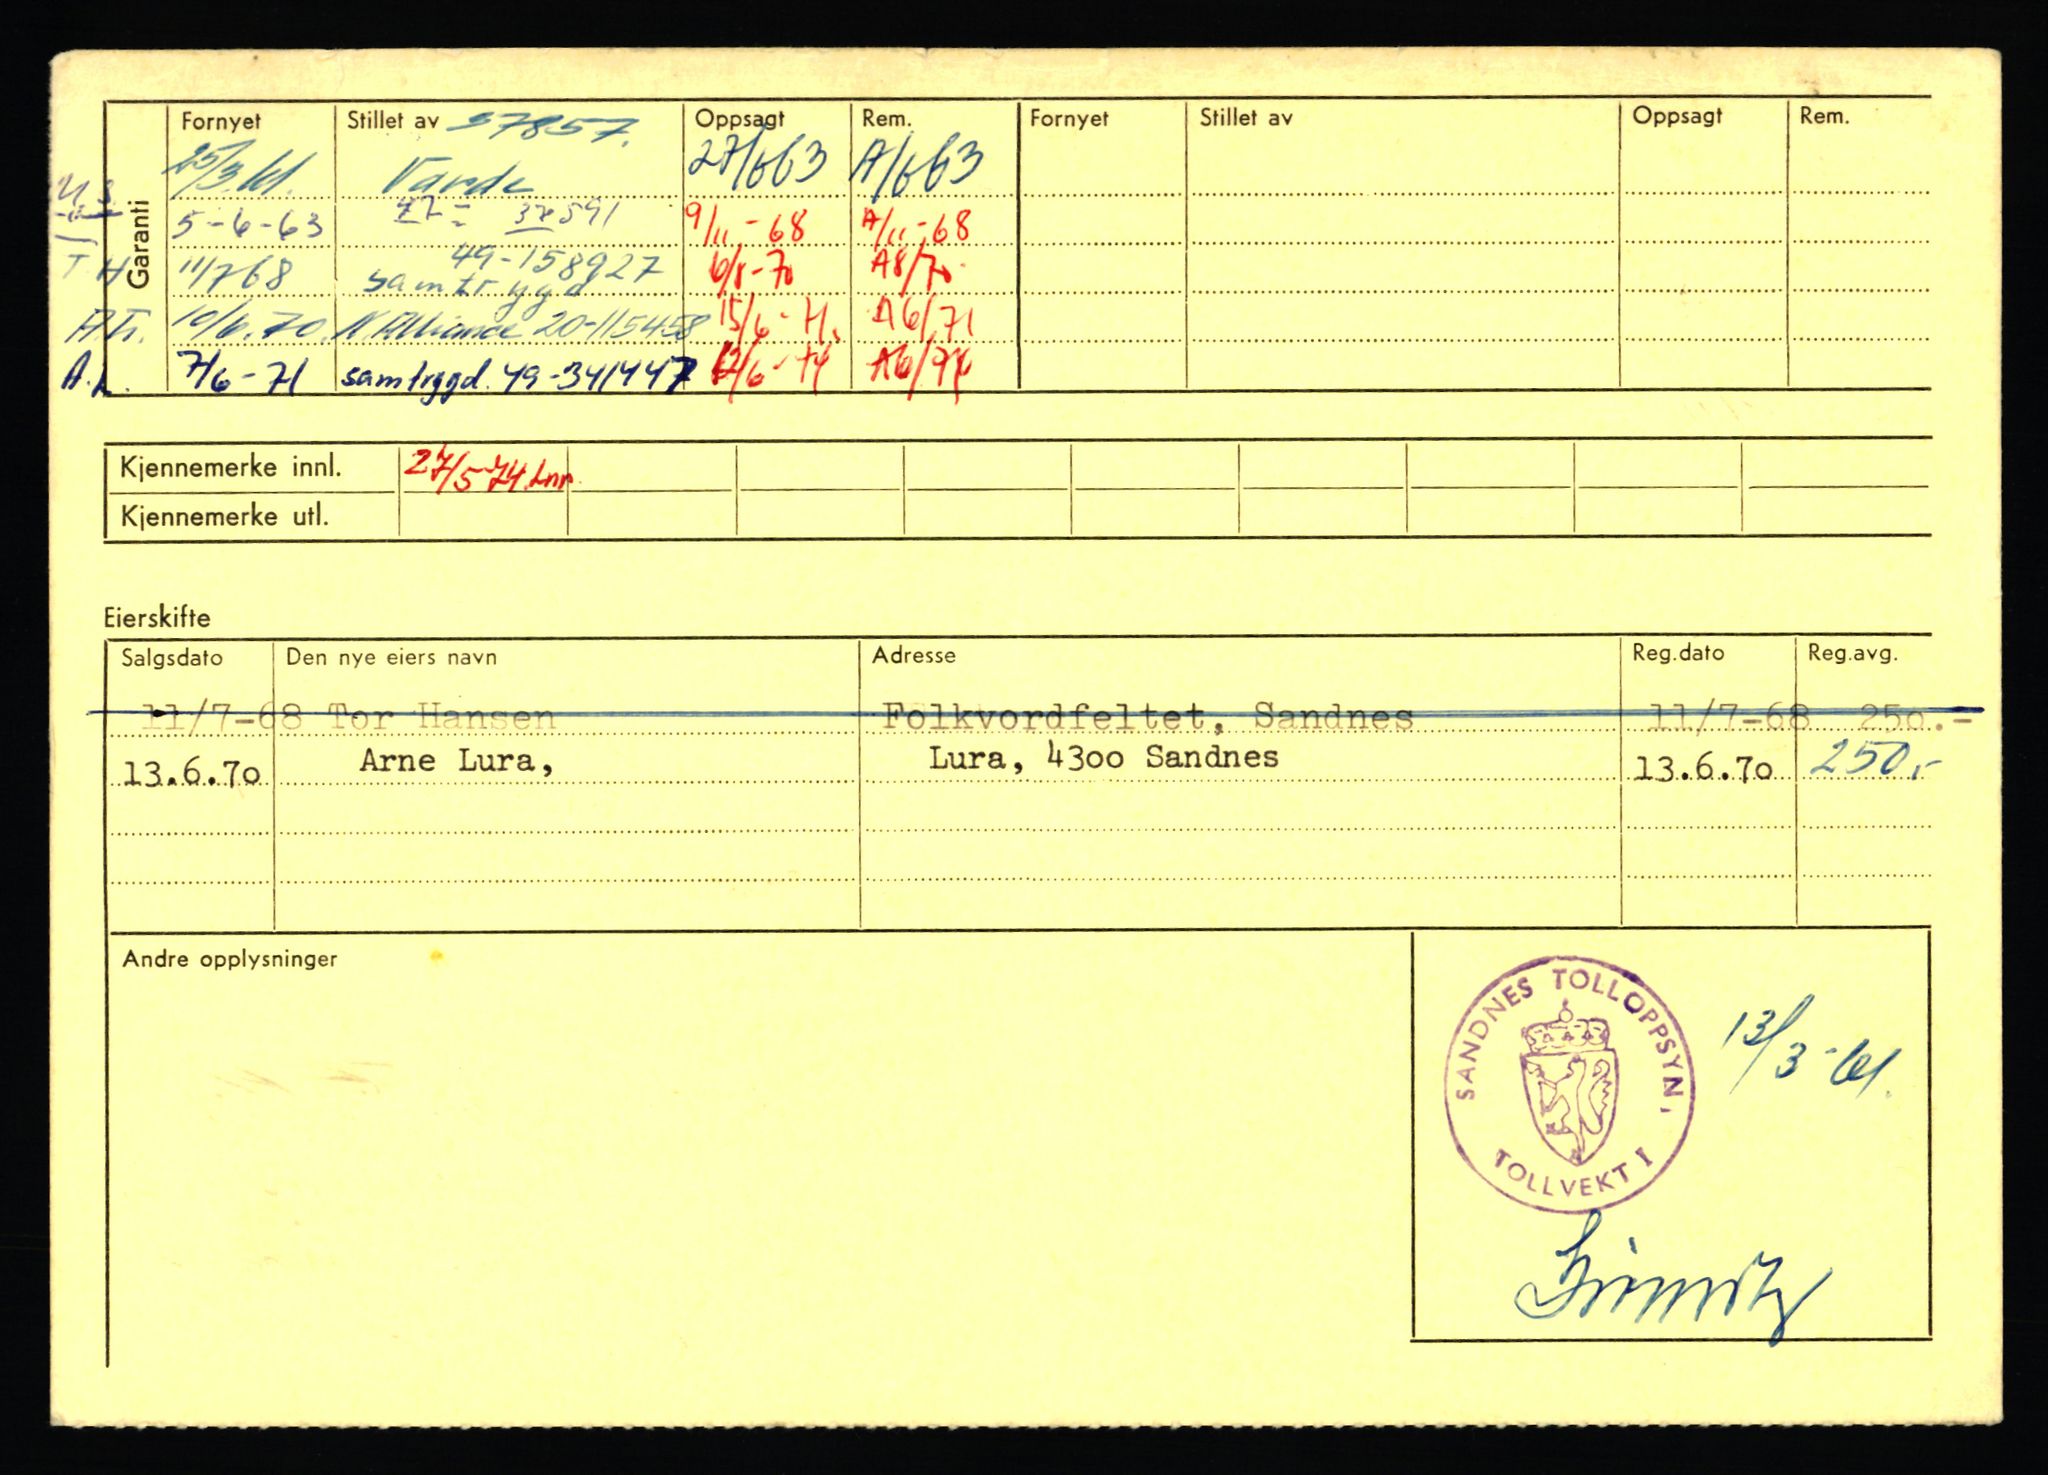 Fornyet Stillet av 57857. Oppsagt Rem. Fornyet Stillet av Oppsagt Rem.
Garanti
25/3.61. Varde 27/6 63 A/6 63
5-6-63 9/11-68 A/11-68
49-158927
T.H 11/7 68 Samtrygd 6/8-70 A8/70
10/6.70. N.Alliance 20-115458 15/6-71. A6/71
A.L. 7/6-71 samtrygd. 49-341447 12/6-74 A6/74
Kjennemerke innl. 27/5 74.
Kjennemerke utl.
Eierskifte
Salgsdato Den nye eiers navn Adresse Reg.dato Reg.avg.
11/7-68 Tor Hansen Folkvordfeltet, Sandnes 11/7-68 250.-
13.6.70 Arne Lura, Lura, 4300 Sandnes 13.6.70 250,-
Andre opplysninger
SANDNES TOLLOPPSYN,
TOLLVEKT I
13/3-61.